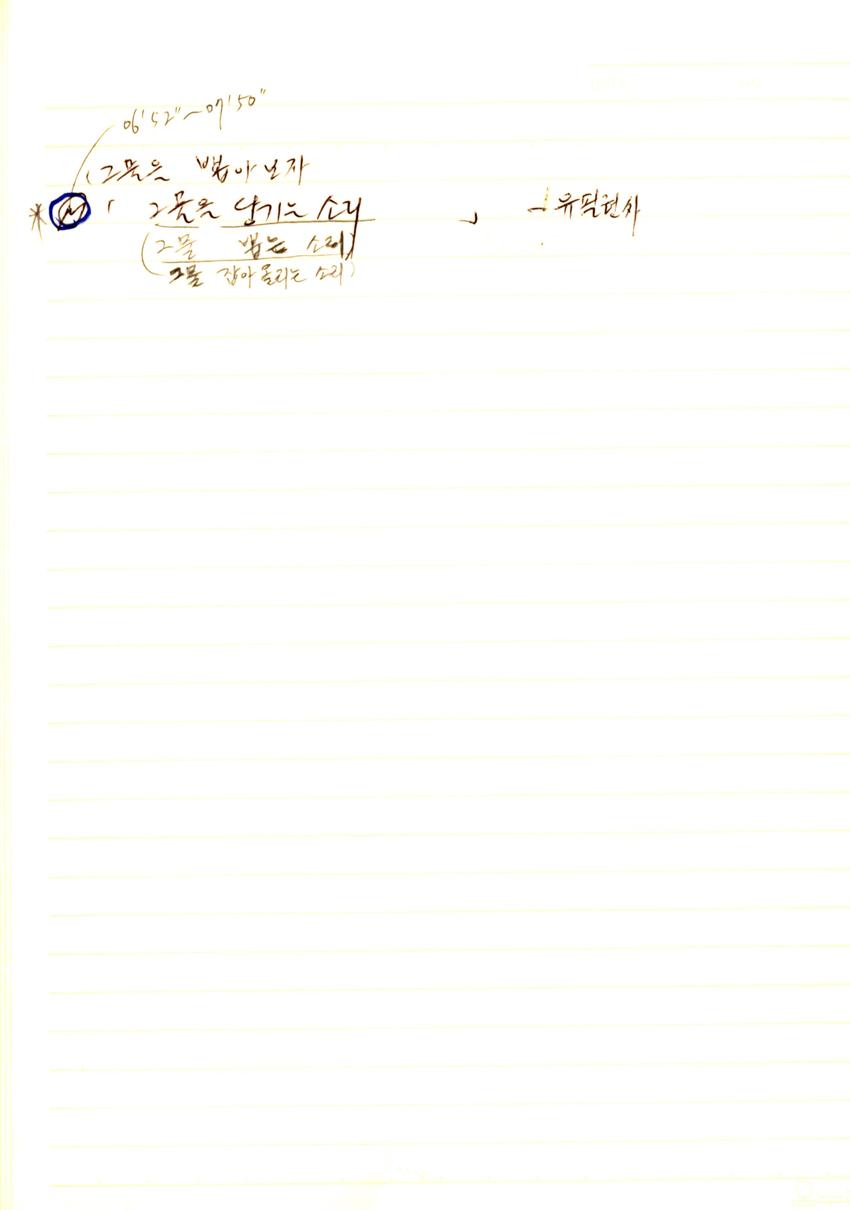 06'52"~07'50"
(그물을 뽑아보자
* 「 그물을 당기는 소리 」 - 유필권사
(그물 뽑는 소리)
그물 잡아올리는 소리)